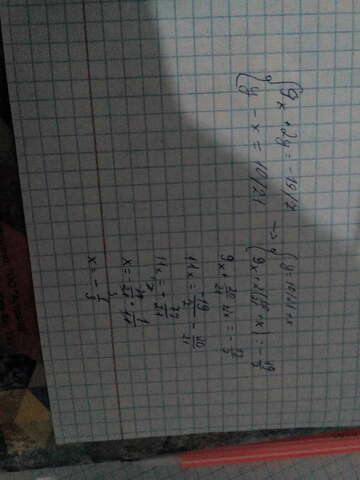 {9x + 2y = - 19/7
{y - x = 10/21
=> {y = 10/21 + x
{9x + 2(10/21 + x) = - 19/7
9x + 20/21 + 2x = - 19/7
11x = - 19/7 - 20/21
11x = - 77/21
x = - 77/21 · 1/11
x = - 1/3